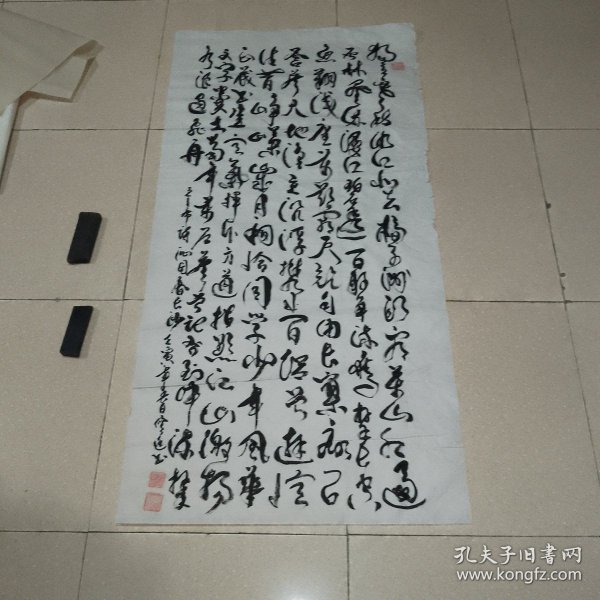 独立寒秋湘江北去橘子洲头看万山红遍
层林尽染漫江碧透百舸争流鹰击长空
鱼翔浅底万类霜天竞自由怅寥廓问
苍茫大地谁主沉浮携来百侣曾游忆
往昔峥嵘岁月稠恰同学少年风华
正茂书生意气挥斥方遒指点江山激扬
文字粪土当年万户侯曾记否到中流击
水浪遏飞舟 诗沁园春长沙 壬寅年 书
孔夫子旧书网
www.kongfz.com